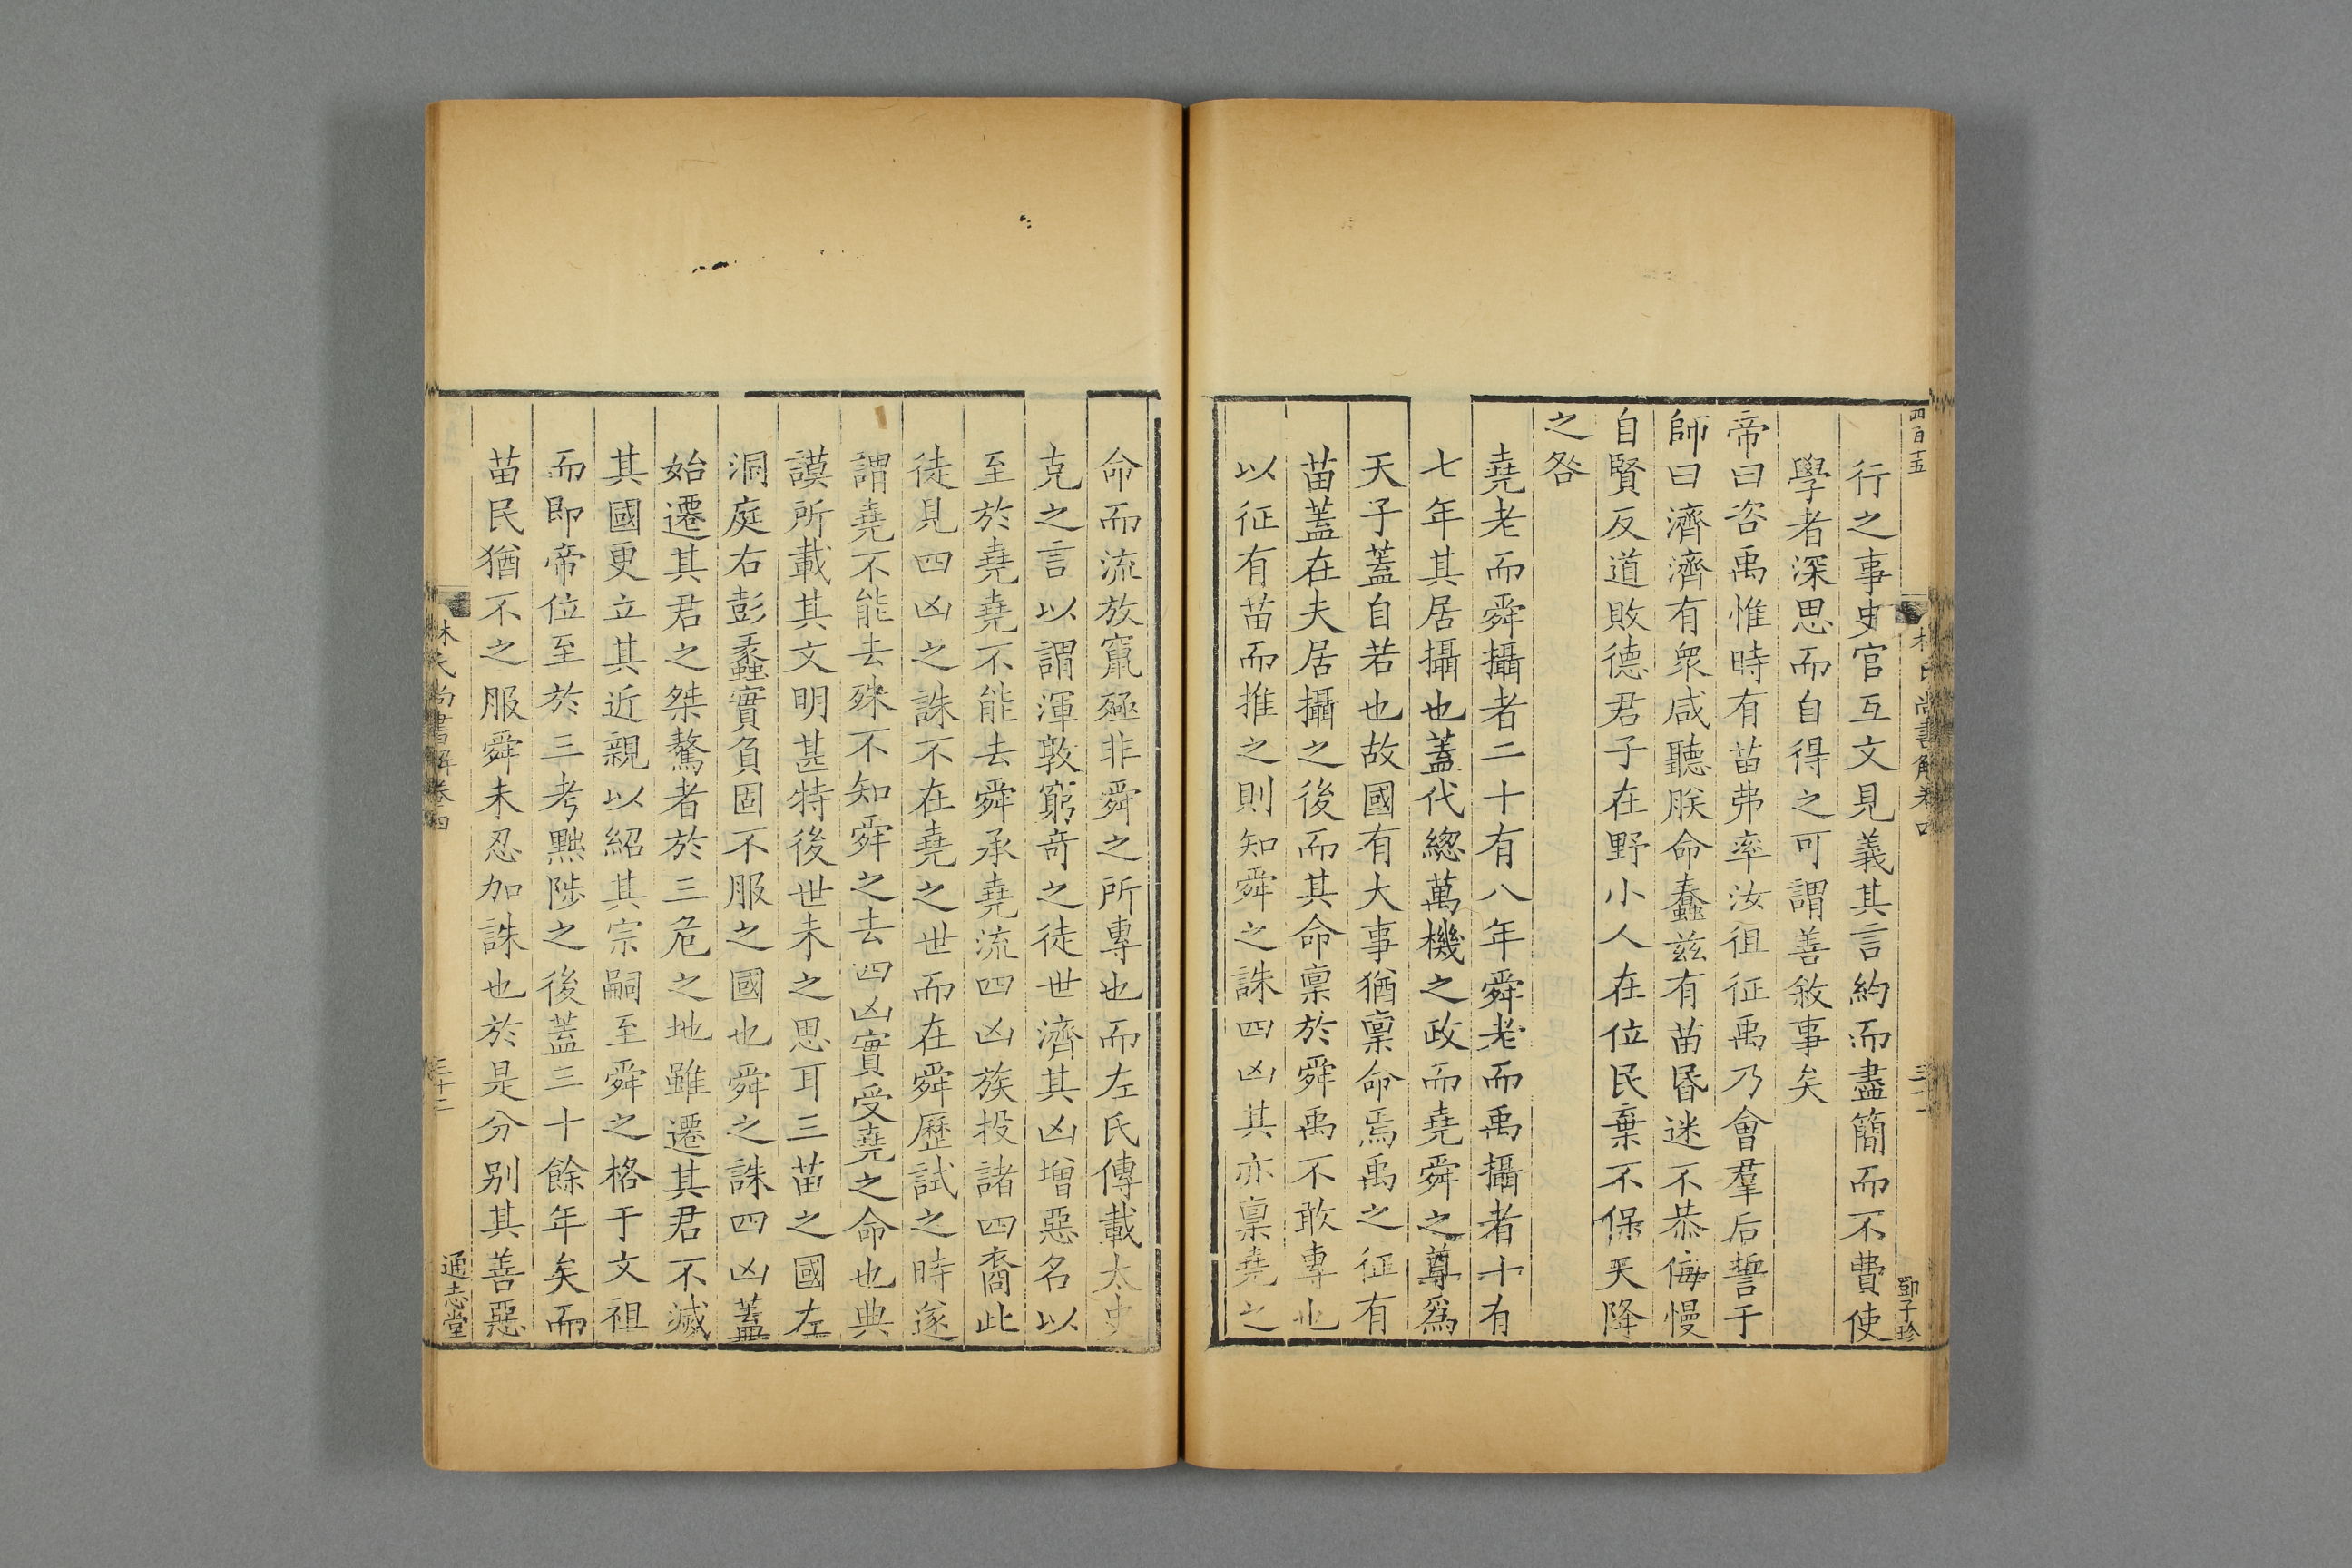 四百十五
林氏尚書解卷四
三十一
鄧子珍
行之事史官互文見義其言約而盡簡而不費使
學者深思而自得之可謂善敘事矣
帝曰咨禹惟時有苗弗率汝徂征禹乃會羣后誓于
師曰濟濟有衆咸聽朕命蠢茲有苗昏迷不恭侮慢
自賢反道敗德君子在野小人在位民棄不保天降
之咎
堯老而舜攝者二十有八年舜老而禹攝者十有
七年其居攝也蓋代緫萬機之政而堯舜之尊爲
天子蓋自若也故國有大事猶稟命焉禹之征有
苗蓋在夫居攝之後而其命稟於舜禹不敢專也
以征有苗而推之則知舜之誅四凶其亦稟堯之
命而流放竄殛非舜之所專也而左氏傳載太史
克之言以謂渾敦窮奇之徒世濟其凶增惡名以
至於堯堯不能去舜承堯流四凶族投諸四裔此
徒見四凶之誅不在堯之世而在舜歷試之時遂
謂堯不能去殊不知舜之去四凶實受堯之命也典
謨所載其文明甚特後世未之思耳三苗之國左
洞庭右彭蠡實負固不服之國也舜之誅四凶蓋
始遷其君之桀驁者於三危之地雖遷其君不滅
其國更立其近親以紹其宗嗣至舜之格于文祖
而即帝位至於三考黜陟之後蓋三十餘年矣而
苗民猶不之服舜未忍加誅也於是分别其善惡
林氏尚書解卷四
三十二
通志堂